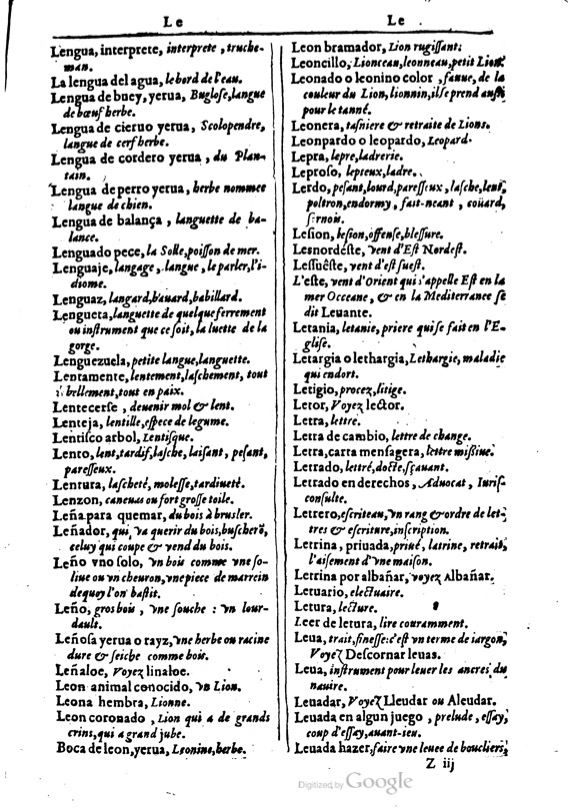 Le
Lengua, interprete, interprete, truche-
man.
La lengua del agua, le bord de l'eau.
Lengua de buey, yerua, Buglose, langue
de bœuf herbe.
Lengua de cieruo yerua, Scolopendre,
langue de cerf herbe.
Lengua de cordero yerua, du Plan-
tain.
Lengua de perro yerua, herbe nommee
langue de chien.
Lengua de balança, languette de ba-
lance.
Lenguado pece, la Solle, poisson de mer.
Lenguaje, langage, langue, le parler, l'i-
diome.
Lenguaz, langard, bauard, babillard.
Lengueta, languette de quelque ferrement
ou instrument que ce soit, la luette de la
gorge.
Lenguezuela, petite langue, languette.
Lentamente, lentement, laschement, tout
bellement, tout en paix.
Lentecerse, deuenir mol & lent.
Lenteja, lentille, espece de legume.
Lentisco arbol, Lentisque.
Lento, lent, tardif, lasche, laisant, pesant,
paresseux.
Lentura, lascheté, molesse, tardiueté.
Lenzon, caneuas ou fort grosse toile.
Leña para quemar, du bois à brusler.
Leñador, qui va querir du bois, buscherō,
celuy qui coupe & vend du bois.
Leño vno solo, vn bois comme vne so-
liue ou vn cheuron, vne piece de marrein
dequoy l'on bastit.
Leño, gros bois, vne souche : vn lour-
dault.
Leñosa yerua o rayz, vne herbe ou racine
dure & seiche comme bois.
Leñaloe, Voyez linaloe.
Leon animal conocido, vn Lion.
Leona hembra, Lionne.
Leon coronado, Lion qui a de grands
crins, qui a grand jube.
Boca de leon, yerua, Leonine, herbe.
Le
Leon bramador, Lion rugissant.
Leoncillo, Lionceau, leonneau, petit Lion.
Leonado o leonino color, fauue, de la
couleur du Lion, lionnin, il se prend aussi
pour le tanné.
Leonera, tasniere & retraite de Lions.
Leonpardo o leopardo, Leopard.
Lepra, lepre, ladrerie.
Leproso, lepreux, ladre.
Lerdo, pesant, lourd, paresseux, lasche, lent,
poltron, endormy, fait-neant, coüard,
sornois.
Lesion, lesion, offense, blessure.
Lesnordéste, vent d'Est Nordest.
Lessuéste, vent d'est suest.
L'este, vent d'Orient qui s'appelle Est en la
mer Occeane, & en la Mediterranee se
dit Leuante.
Letania, letanie, priere qui se fait en l'E-
glise.
Letargia o lethargia, Lethargie, maladie
qui endort.
Letigio, procez, litige.
Letor, Voyez lector.
Letra, lettre.
Letra de cambio, lettre de change.
Letra, carta mensagera, lettre missiue.
Letrado, lettré, docte, sçauant.
Letrado en derechos, Aduocat, Iuris-
consulte.
Letrero, escriteau, vn rang & ordre de let-
tres & escriture, inscription.
Letrina, priuada, priué, latrine, retrait,
l'aisement d'vne maison.
Letrina por albañar, voyez Albañar.
Letuario, electuaire.
Letura, lecture.
Leer de letura, lire couramment.
Leua, trait, finesse: c'est vn terme de iargon,
Voyez Descornar leuas.
Leua, instrument pour leuer les ancres du
nauire.
Leuadar, Voyez Lleudar ou Aleudar.
Leuada en algun juego, prelude, essay,
coup d'essay, auant-ieu.
Leuada hazer, faire vne leuee de boucliers,
Z iij
Digitized by Google